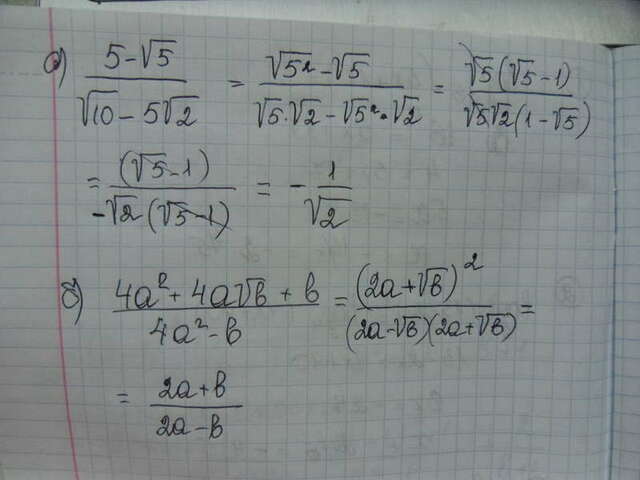 а) (5-√5)/(√10 - 5√2) = (√5² - √5)/(√5·√2 - √5²·√2) = (√5(√5-1))/(√5√2(1-√5))
= (√5-1)/(-√2(√5-1)) = -1/√2
б) (4a² + 4a√b + b)/(4a² - b) = (2a+√b)²/((2a-√b)(2a+√b)) =
= (2a+b)/(2a-b)